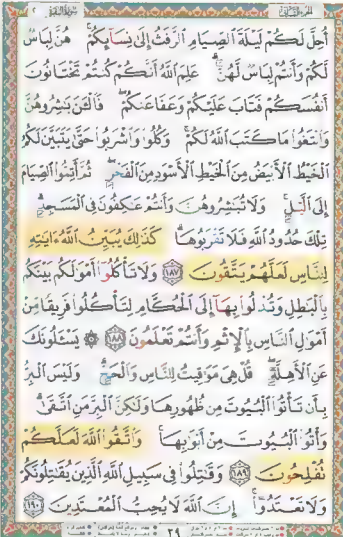 سورة البقرة ٢
أُحِلَّ لَكُمْ لَيْلَةَ ٱلصِّيَامِ ٱلرَّفَثُ إِلَىٰ نِسَآئِكُمْ ۚ هُنَّ لِبَاسٌ
لَّكُمْ وَأَنتُمْ لِبَاسٌ لَّهُنَّ ۗ عَلِمَ ٱللَّهُ أَنَّكُمْ كُنتُمْ تَخْتَانُونَ
أَنفُسَكُمْ فَتَابَ عَلَيْكُمْ وَعَفَا عَنكُمْ ۖ فَٱلْـَٰٔنَ بَٰشِرُوهُنَّ
وَٱبْتَغُوا۟ مَا كَتَبَ ٱللَّهُ لَكُمْ ۚ وَكُلُوا۟ وَٱشْرَبُوا۟ حَتَّىٰ يَتَبَيَّنَ لَكُمُ
ٱلْخَيْطُ ٱلْأَبْيَضُ مِنَ ٱلْخَيْطِ ٱلْأَسْوَدِ مِنَ ٱلْفَجْرِ ۖ ثُمَّ أَتِمُّوا۟ ٱلصِّيَامَ
إِلَى ٱلَّيْلِ ۚ وَلَا تُبَٰشِرُوهُنَّ وَأَنتُمْ عَٰكِفُونَ فِى ٱلْمَسَٰجِدِ ۗ
تِلْكَ حُدُودُ ٱللَّهِ فَلَا تَقْرَبُوهَا ۗ كَذَٰلِكَ يُبَيِّنُ ٱللَّهُ ءَايَٰتِهِۦ
لِلنَّاسِ لَعَلَّهُمْ يَتَّقُونَ ﴿١٨٧﴾ وَلَا تَأْكُلُوٓا۟ أَمْوَٰلَكُم بَيْنَكُم
بِٱلْبَٰطِلِ وَتُدْلُوا۟ بِهَآ إِلَى ٱلْحُكَّامِ لِتَأْكُلُوا۟ فَرِيقًا مِّنْ
أَمْوَٰلِ ٱلنَّاسِ بِٱلْإِثْمِ وَأَنتُمْ تَعْلَمُونَ ﴿١٨٨﴾ ۞ يَسْـَٔلُونَكَ
عَنِ ٱلْأَهِلَّةِ ۖ قُلْ هِىَ مَوَٰقِيتُ لِلنَّاسِ وَٱلْحَجِّ ۗ وَلَيْسَ ٱلْبِرُّ
بِأَن تَأْتُوا۟ ٱلْبُيُوتَ مِن ظُهُورِهَا وَلَٰكِنَّ ٱلْبِرَّ مَنِ ٱتَّقَىٰ ۗ
وَأْتُوا۟ ٱلْبُيُوتَ مِنْ أَبْوَٰبِهَا ۚ وَٱتَّقُوا۟ ٱللَّهَ لَعَلَّكُمْ
تُفْلِحُونَ ﴿١٨٩﴾ وَقَٰتِلُوا۟ فِى سَبِيلِ ٱللَّهِ ٱلَّذِينَ يُقَٰتِلُونَكُمْ
وَلَا تَعْتَدُوٓا۟ ۚ إِنَّ ٱللَّهَ لَا يُحِبُّ ٱلْمُعْتَدِينَ ﴿١٩٠﴾
٢٩